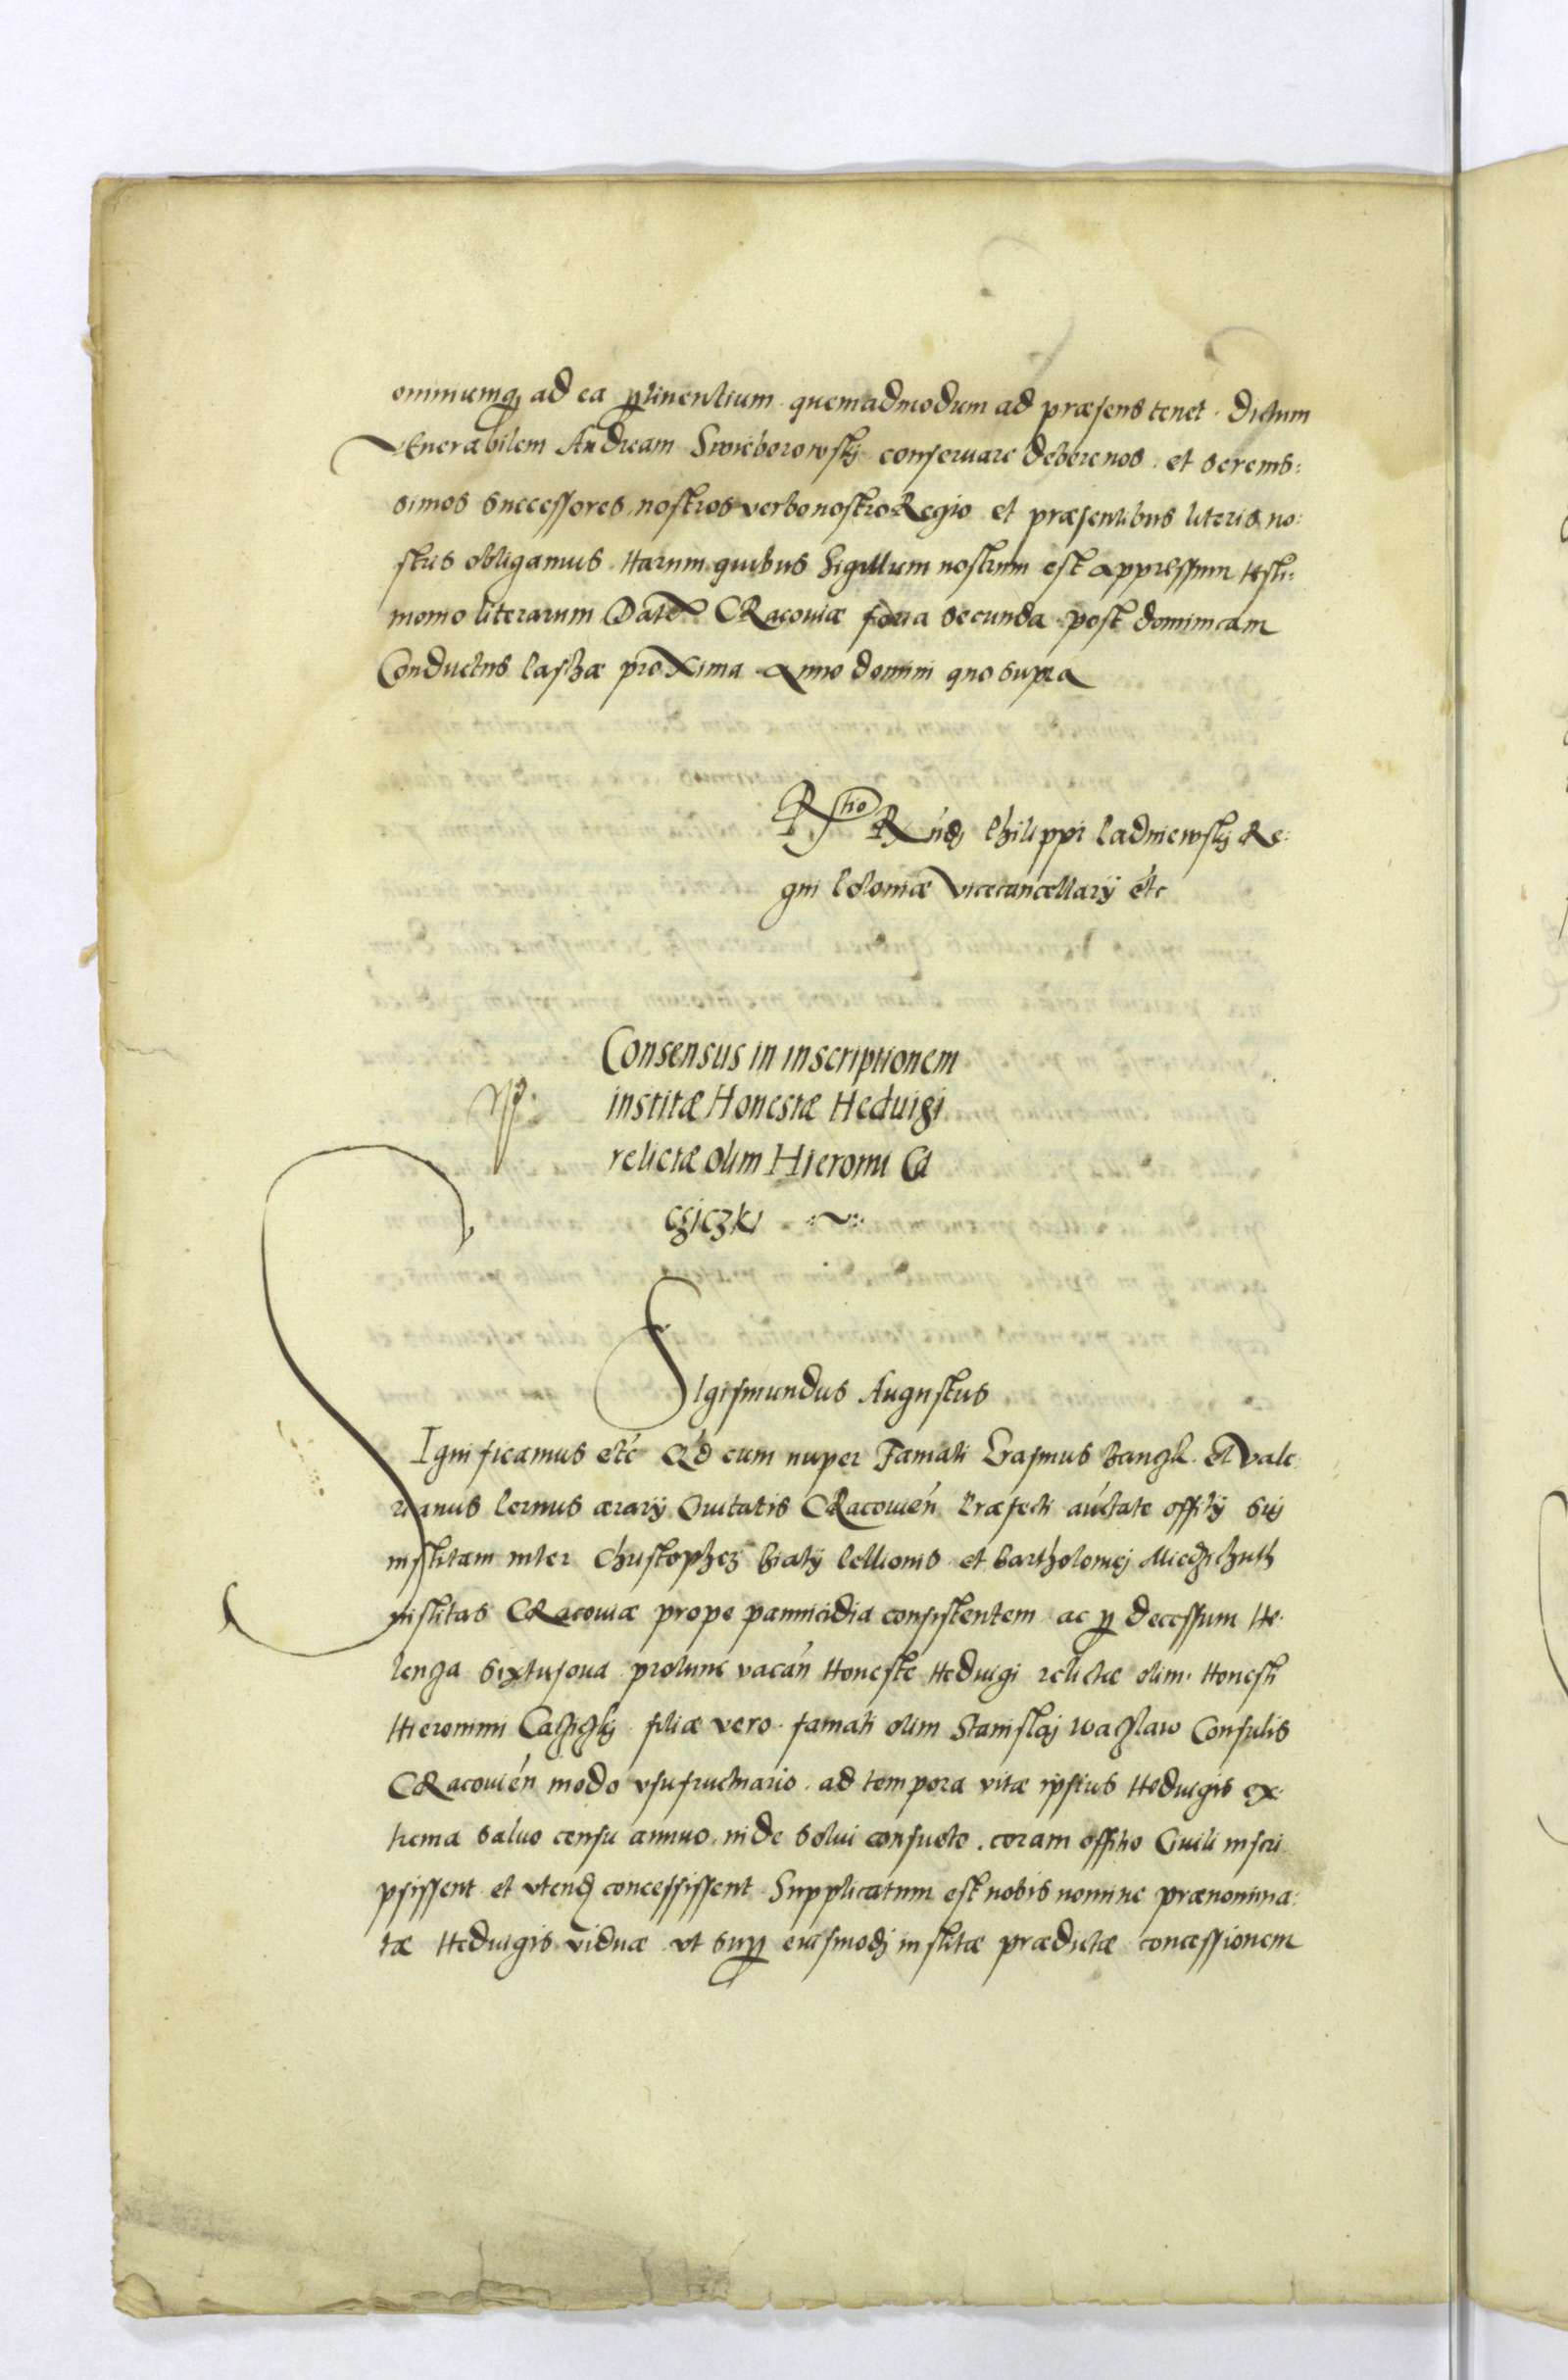 omniumq₃ ad ea ꝑtinentium quemadmodum ad præsens tenet dictum
Venerabilem Andream Swieborowskj conseruare debere nos et sereniss:
simos successores nostros verbo nostro Regio et præsentibus literis no:
stris obligamus Harum quibus Sigillum nostrum est appressum testi:
monio literarum Dat̃ CRacouiæ feria secunda post dominicam
Conductus Paschæ proxima Anno domini quo supra
Rtio Rndj Philippi Padniewskj Re:
gni Poloniæ vicecancellarÿ etc
Consensus in inscriptionem
institæ Honestæ Heduigi
relictæ olim Hieronii Ca
cziczki
Sigismundus Augustus
SIgnificamus etc Qd cum nuper Famati Erasmus Bangk et Vale
rianus Pernus ærarÿ Ciuitatis CRacouien Præfecti auctate offitÿ suj
institam inter Christopherj Bialÿ Pellionis et Bartholomej Miechichuth
institas CRacouiæ prope pannicidia consistentem ac ꝑ decessum He:
lenga Sixtusoua protunc vacan Honeste Heduigi relictæ olim Honesti
Hieronimi Caczichkj filiæ vero famati olim Stanislaj Waczlaw Consulis
CRacouien modo vsufructuario ad tempora vitæ ipsius Heduigis ex:
trema saluo censu annuo inde solui consueto coram offitio Ciuili inscri
psissent et vtendj concessissent Supplicatum est nobis nomine prænomina:
tæ Heduigis viduæ vt supꝑ eiusmodj institæ prædictæ concessionem